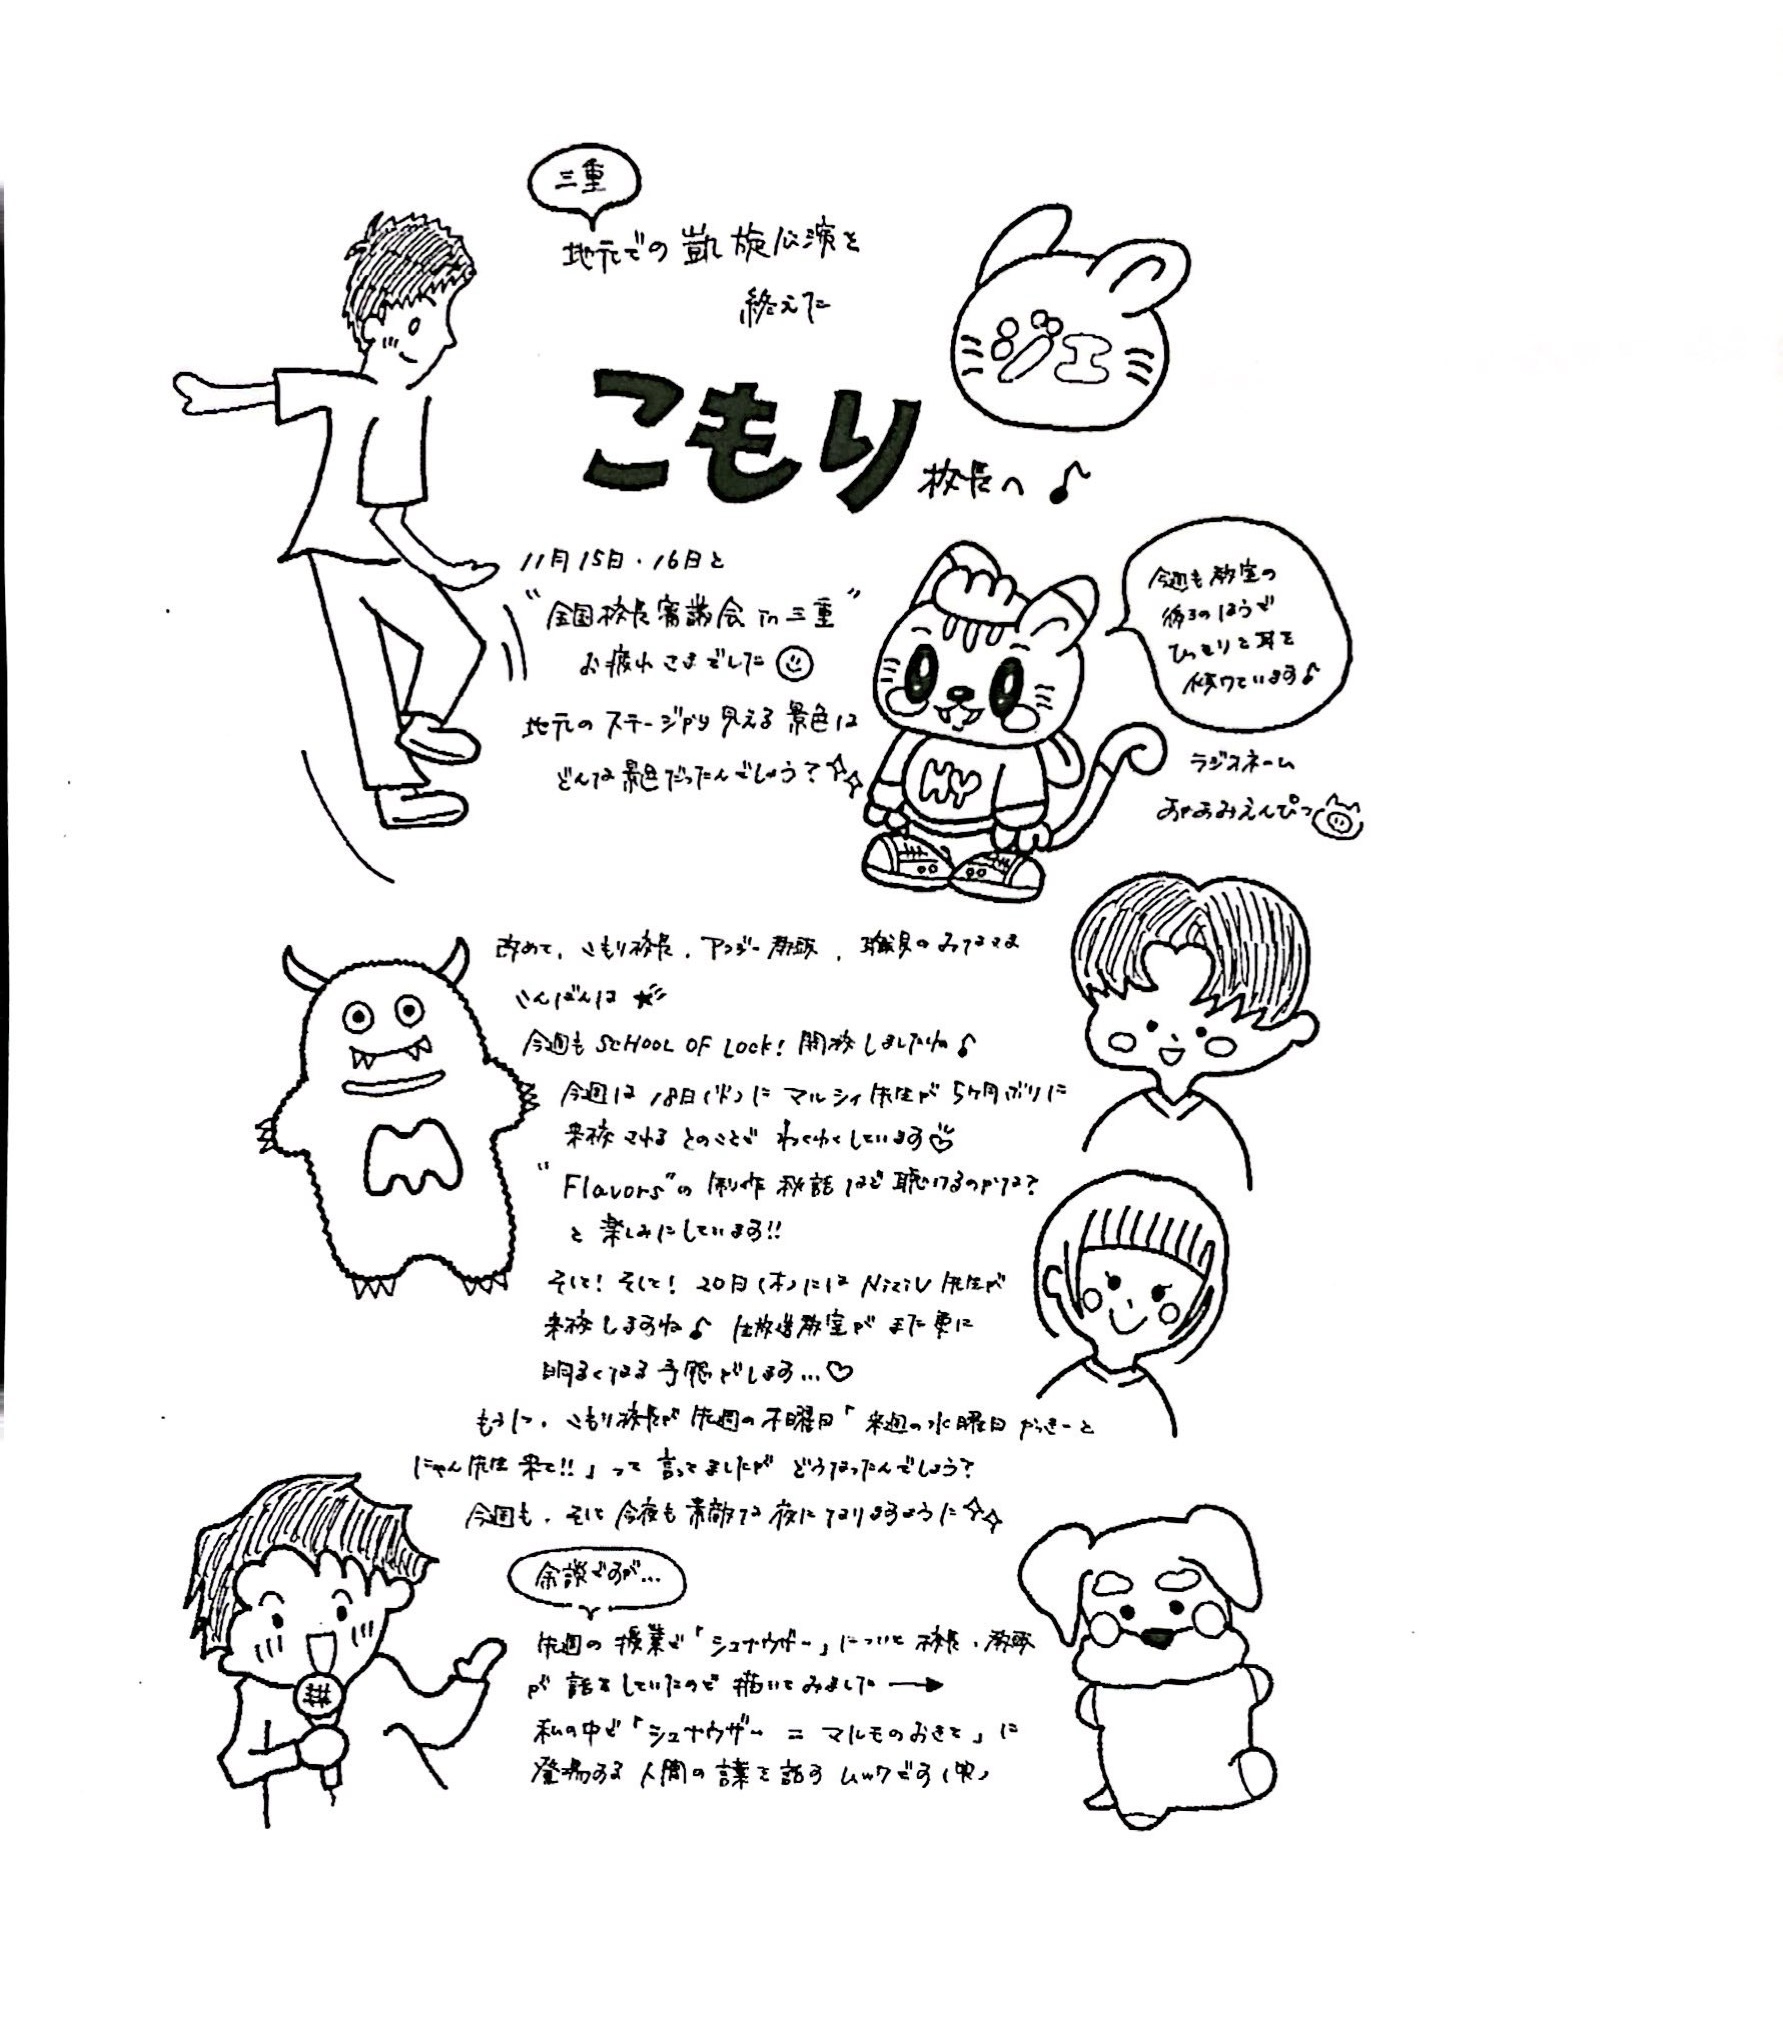 三重
地元での凱旋公演を
終えた
ジェ
こもり校長へ♪
11月15日・16日と
"全国校長審議会 in 三重"
お疲れさまでした
地元のステージから見える景色は
どんな景色だったんでしょう?
今週も教室の
後ろのほうで
ひっそりと耳を
傾けています♪
NY
ラジオネーム
あみえんぴつ
改めて、こもり校長、アンジー教頭、職員のみなさま
こんばんは★
今週も SCHOOL OF LOCK! 開校しましたね♪
今週は 18日(火)に マルシィ先生が 5ヶ月ぶりに
来校されるとのことで わくわくしています♡
"Flavors"の 制作秘話など聴けるのかな?
と楽しみにしています!!
そして!そして! 20日(木)には NiziU 先生が
来校しますね♪ 生放送教室が また更に
明るくなる予感がします…♡
もう1つ、こもり校長が 先週の木曜日「来週の水曜日 やっきーと
にゃん先生来て!!」って 言ってましたが どうなったんでしょう?
今週も、そして今夜も素敵な夜になりますように
余談ですが…
先週の授業で「シュナウザー」について 校長・教頭
が 話をしていたので 描いてみました→
私の中で「シュナウザー = マルモのおきて」に
登場する 人間の言葉を話す ムックです(笑)